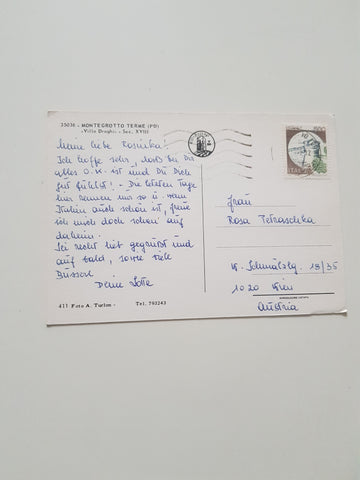 35036 - MONTEGROTTO TERME (PD)
-Villa Draghi - Sec. XVIII
Meine liebe Rosinka!
Ich hoffe sehr, dass bei Dir
alles O.K. ist und Du Dich
gut fühlst! - Die letzten Tage
hier rennen nur so u. wenn
Italien auch schön ist, freue
ich mich doch schon auf
daheim.
Sei recht lieb gegrüsst und
auf bald, sowie viele
Busserl
Deine Lotte
411 Foto A. Turlon - Tel. 793243
ITALIA
Frau
Rosa Petraschka
W. Schmälzlg. 18/35
1020 Wien
Austria